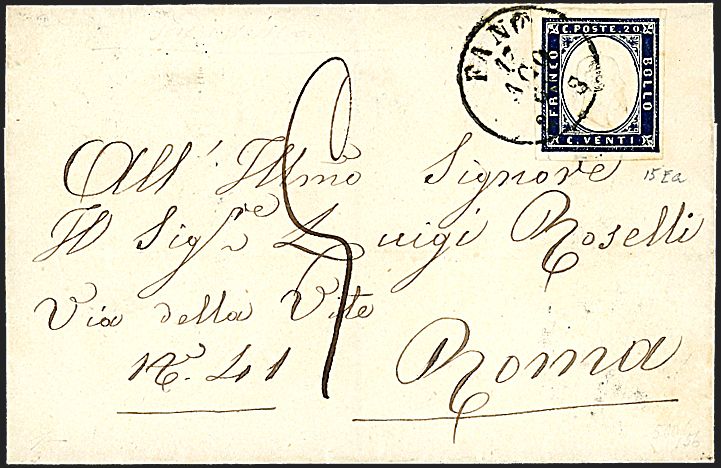 FANO
12
AGO
C. POSTE. 20
FRANCO
BOLLO
C. VENTI
15Ea
All' Illmo Signore
Il Sigre Luigi Roselli
Via della Vite
No. 41
Roma